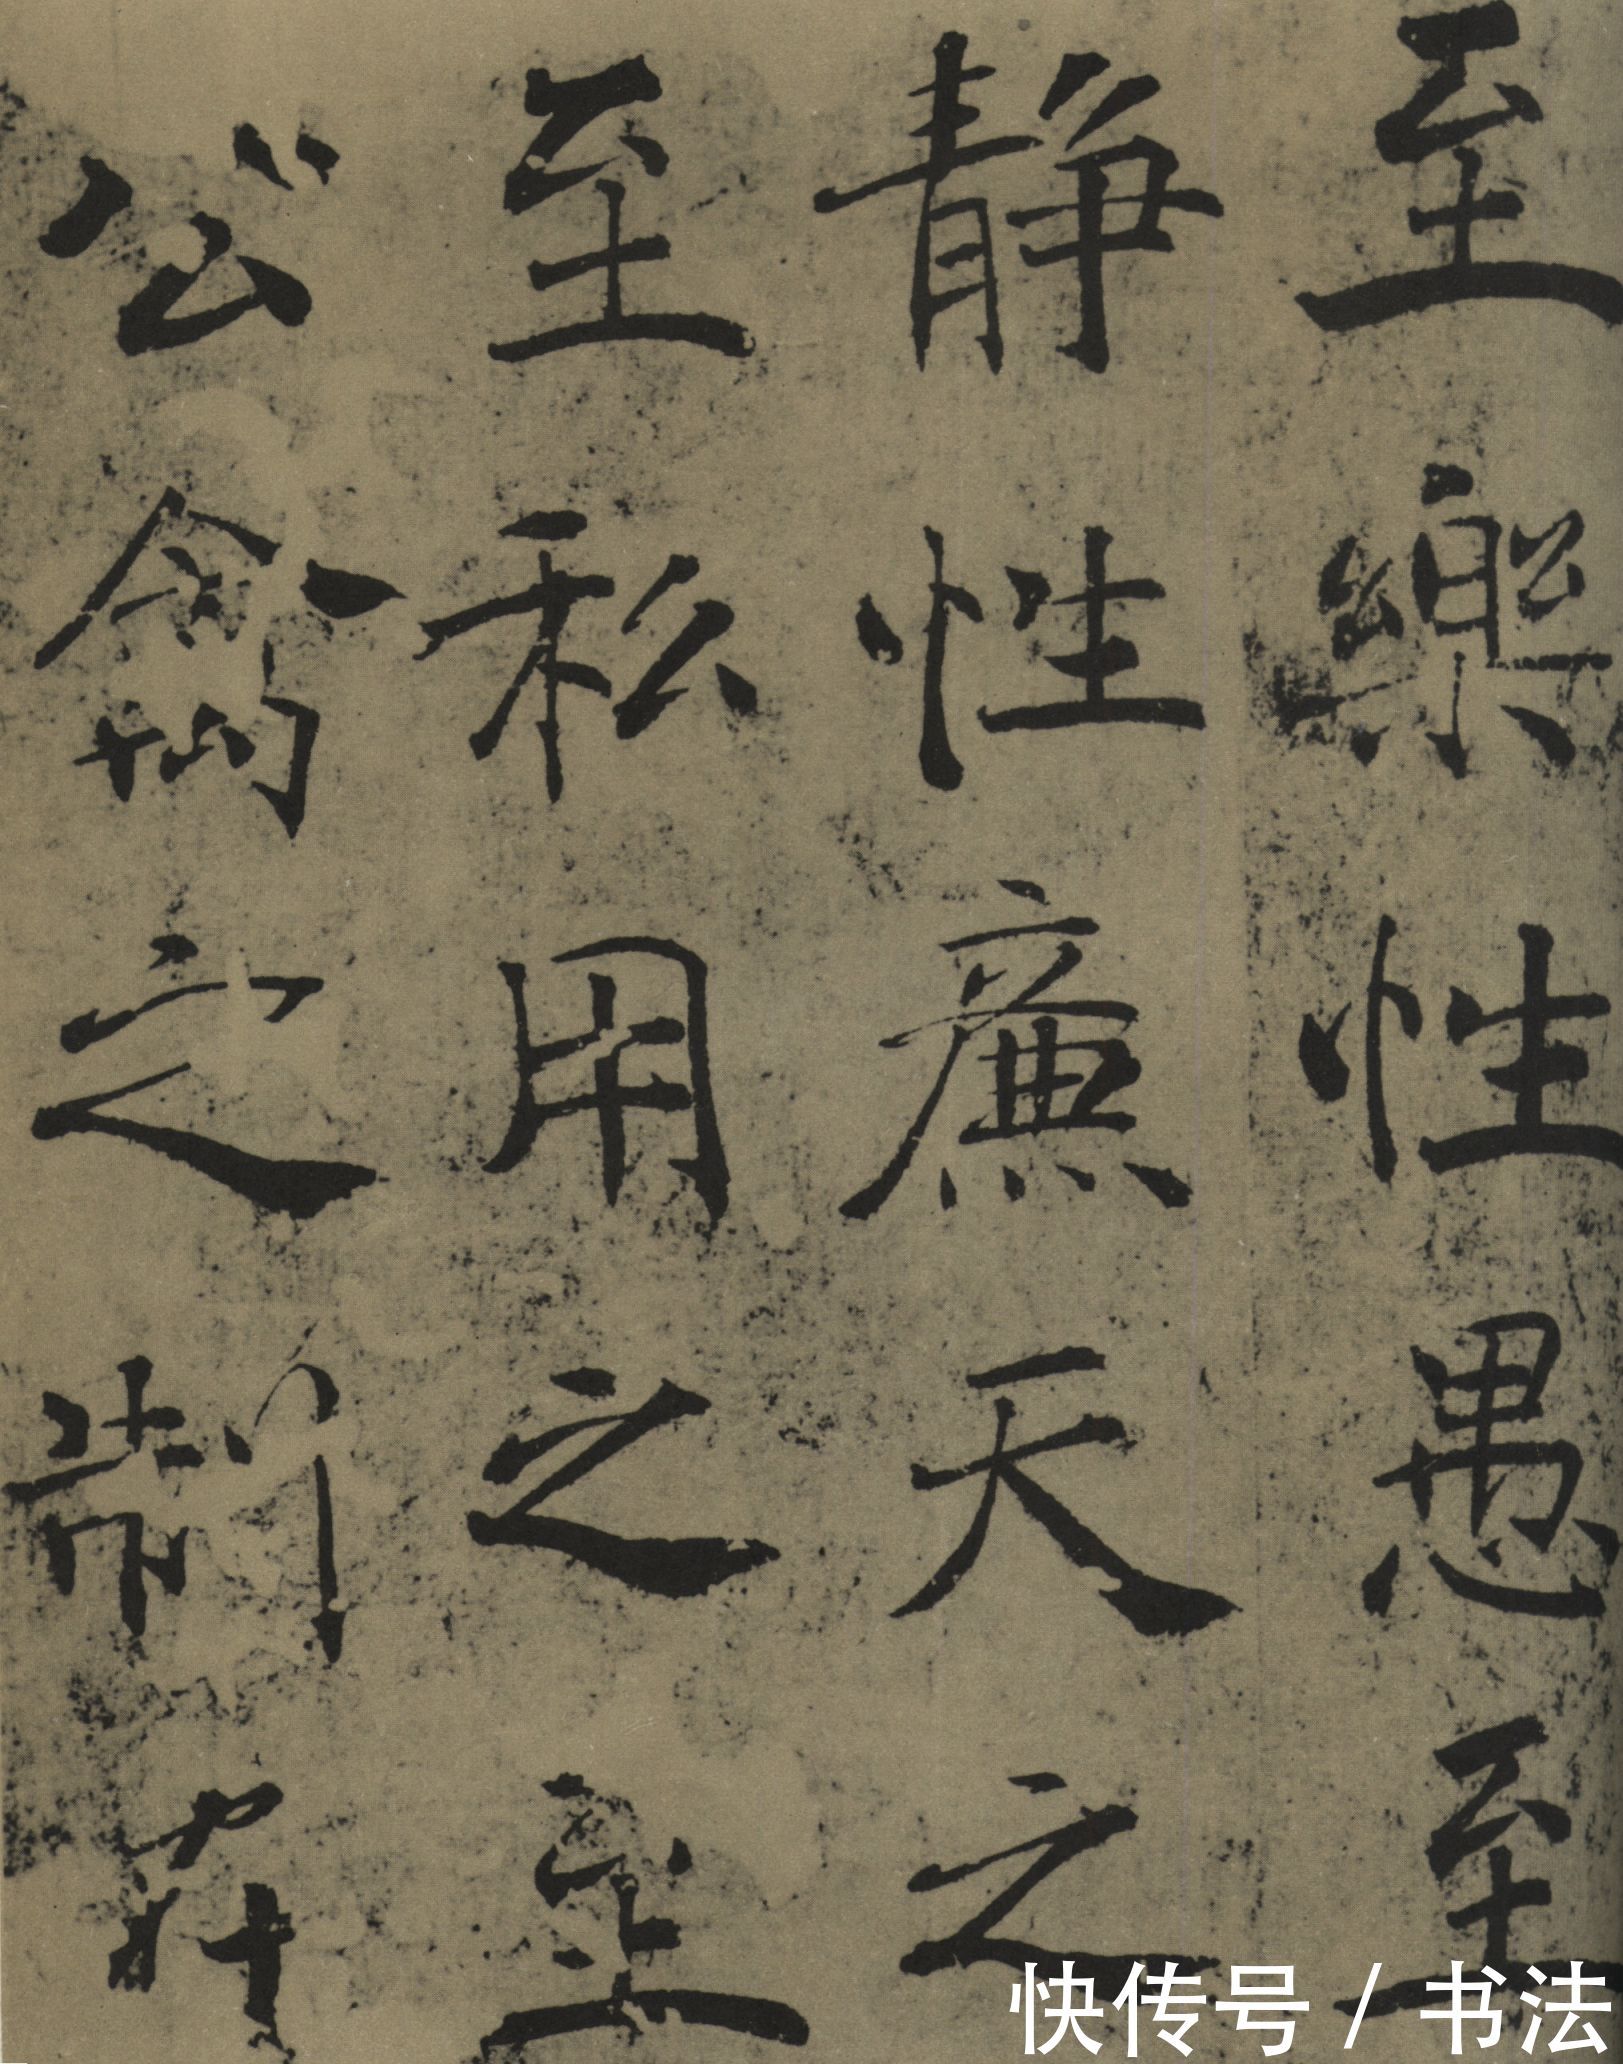 至樂性愚至
静性廉天之
至私用之至
公禽之制在
快传号 / 书法